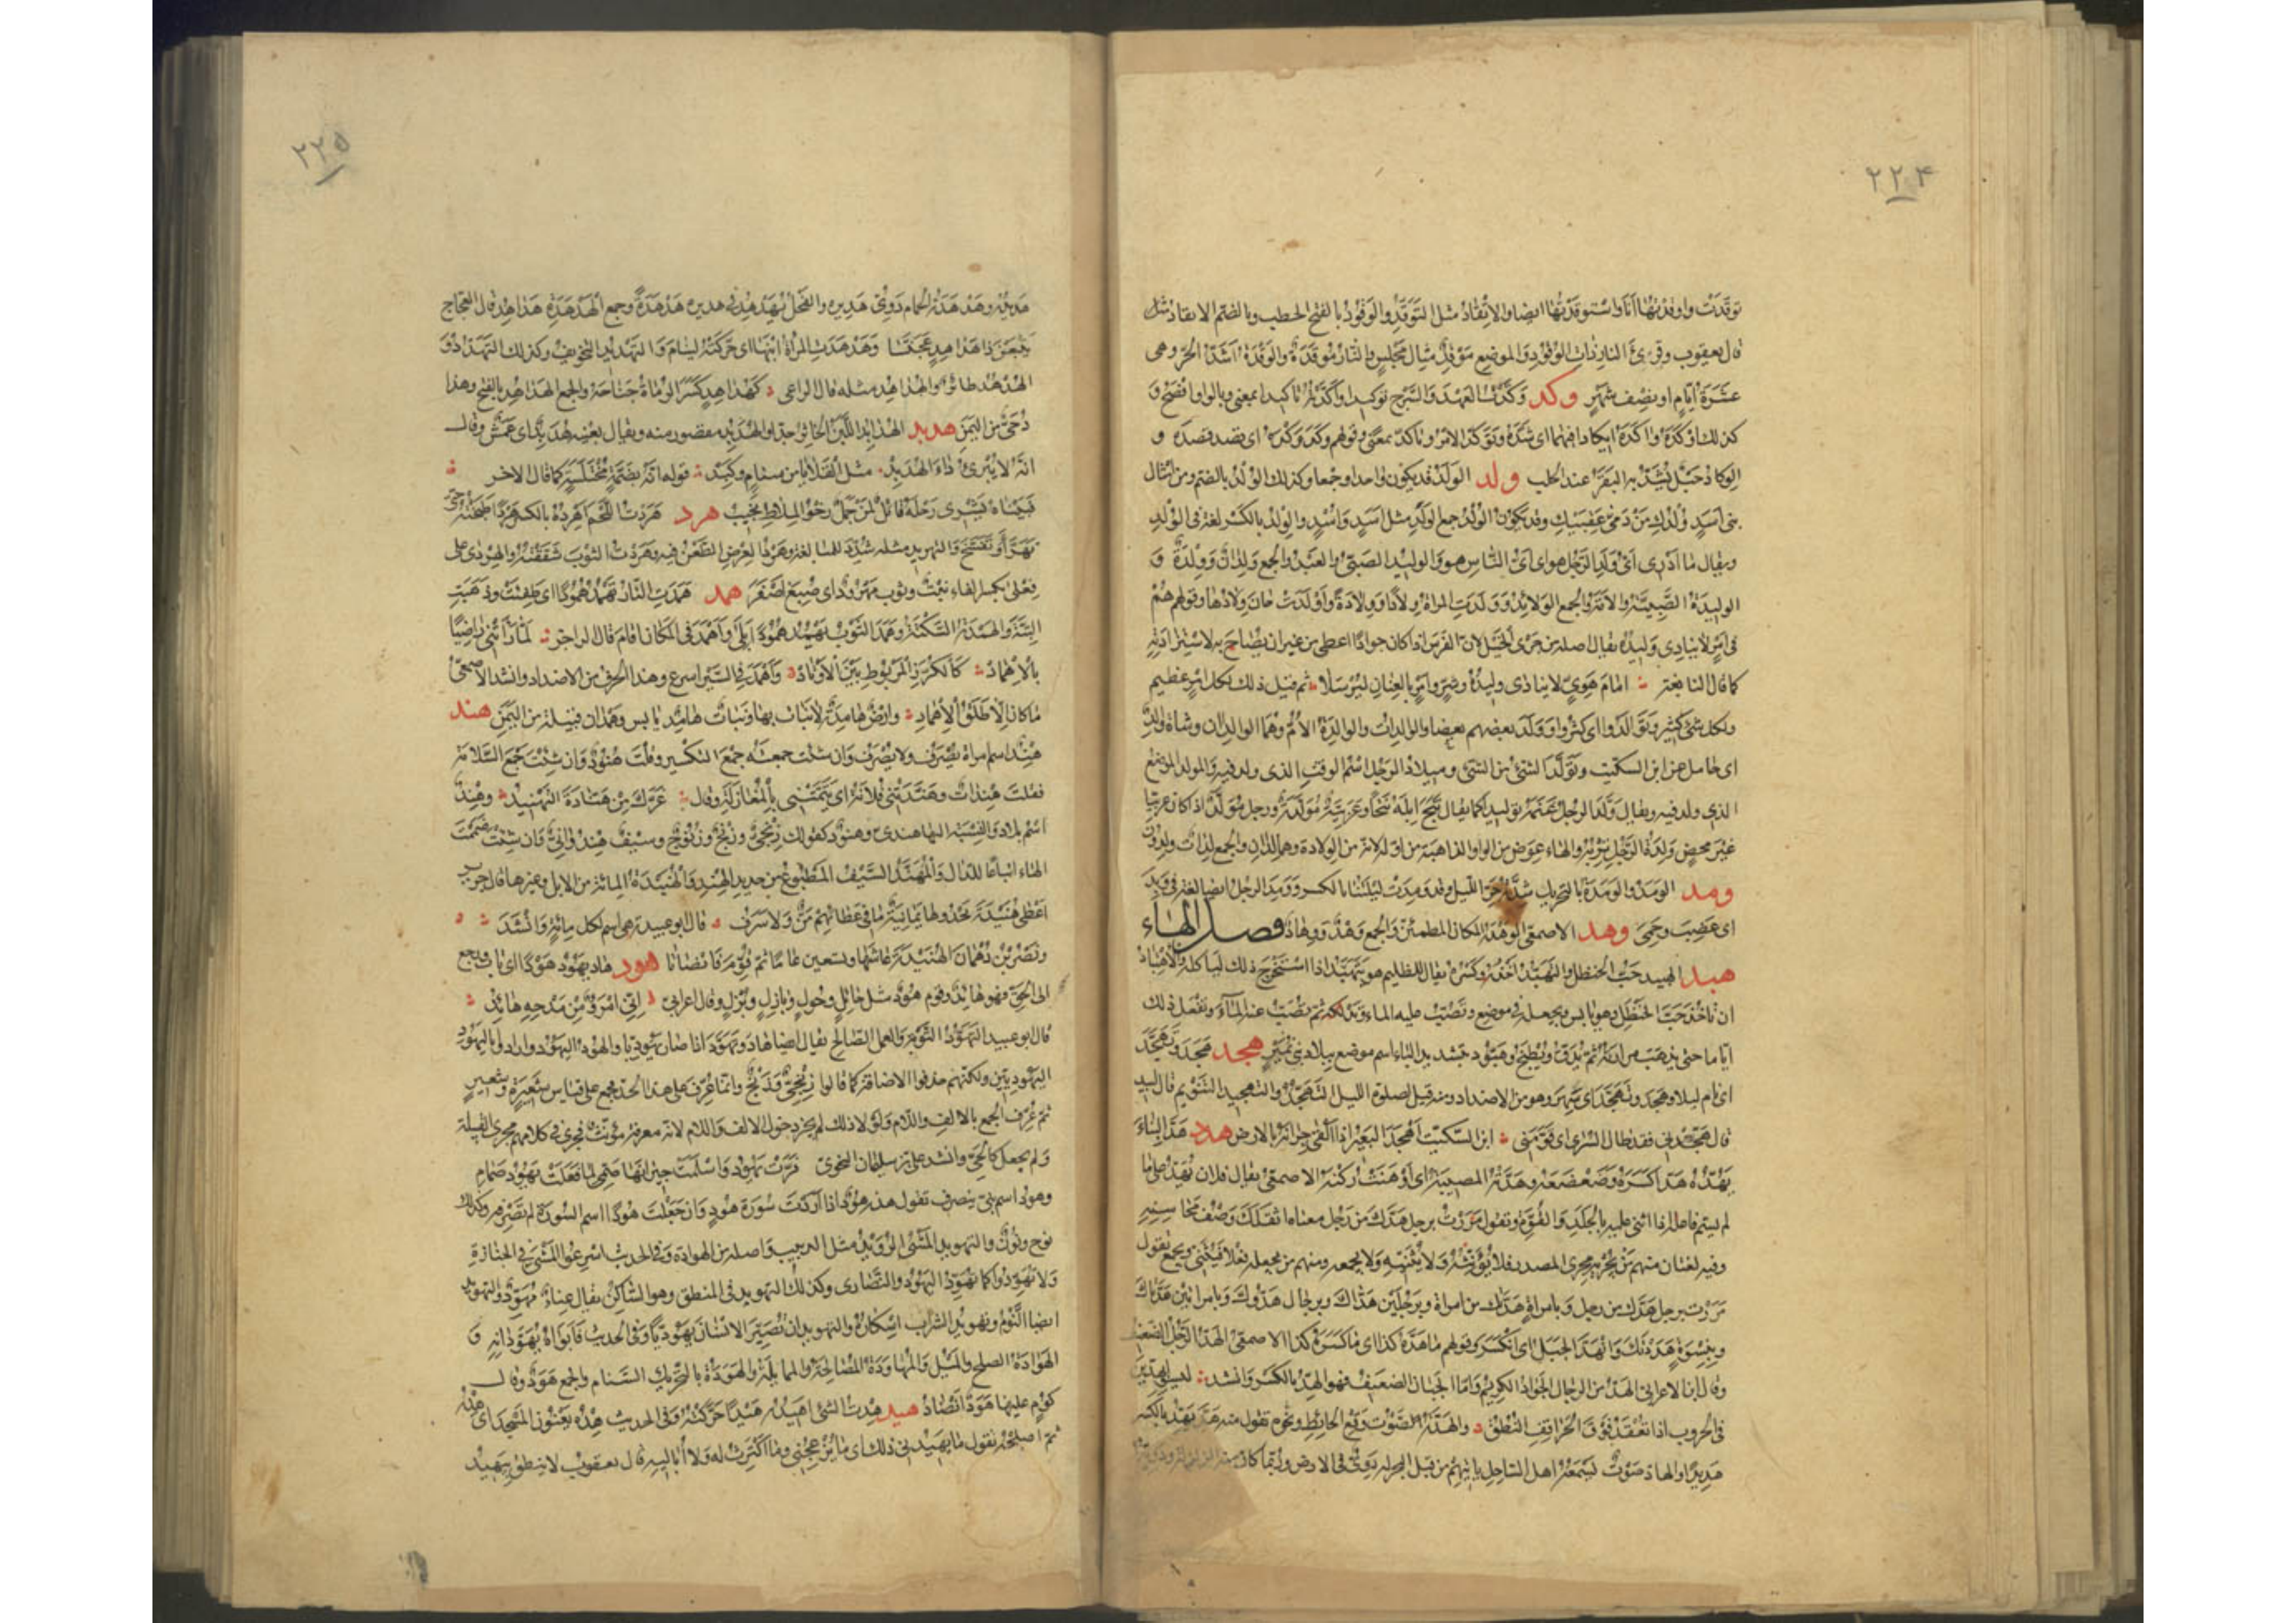 ٢٢٤
توقدت واوقدتها انا واستوقدتها ايضا والاتقاد مثل التوقد والوقود بالفتح الحطب وبالضم الاتقاد
قال يعقوب وقرئ النار ذات الوقود والموضع موقد مثال مجلس والنار موقدة والوقدة اشد الحر وهى
عشرة ايام او نصف شهر وكد وكدت العهد والسرج توكيدا واكدته تاكيدا بمعنى وبالواو افصح و
كذلك اوكده واكده ايكادا فيهما اى شده وتوكد الامر وتاكد بمعنى وقولهم وكد وكده اى قصد قصده و
الوكاد حبل يشد به البقر عند الحلب ولد الولد قد يكون واحدا وجمعا وكذلك الولد بالضم ومن امثال
بنى اسد ولدك من دمى عقبيك وقد يكون الولد جمع الولد مثل اسد واسد والولد بالكسر لغة فى الولد
ويقال ما ادرى اى ولد الرجل هو اى اى الناس هو والوليد الصبى والعبد والجمع ولدان وولدة و
الوليدة الصبية والامة والجمع الولائد وولدت المراة ولادا وولادة واولدت حان ولادها وقولهم هم
فى امر لا ينادى وليده يقال اصله من جرى الخيل لان الفرس اذا كان جوادا اعطى من غير ان يصاح به لاستزادته
كما قال النابغة امام هوى لا ينادى وليده وشد وامر بالعنان ليرسلا ثم قيل ذلك لكل امر عظيم
ولكل شئ كثير وتوالدوا اى كثروا وولد بعضهم بعضا والوالد الاب والوالدة الام وهما الوالدان وشاة والد
اى حامل عن ابن السكيت وتولد الشئ من الشئ وميلاد الرجل اسم الوقت الذى ولد فيه والمولد الموضع
الذى ولد فيه ويقال ولد الرجل غنمه توليدا كما يقال نتج ابله نتجا وعربية مولدة ورجل مولد اذا كان عربيا
غير محض ولدة الرجل تربه والهاء عوض من الواو الذاهبة من اوله لانه من الولادة وهما لدان والجمع لدات ولدون
ومد الومد والومدة بالتحريك شدة حر الليل وقد ومدت ليلتنا بالكسر وومد الرجل ايضا لغة فى وبد
اى غضب وحمى وهد الاصمعى الوهدة المكان المطمئن والجمع وهد ووهاد فصل الهاء
هبد الهبيد حب الحنظل والتهبد اخذه وكسره يقال للظليم هو يتهبد اذا استخرج ذلك لياكله والاهتباد
ان تاخذ حب الحنظل وهو يابس وتجعله فى موضع وتصب عليه الماء وتدلكه ثم تصب عنه الماء وتفعل ذلك
اياما حتى يذهب مرارته ثم يدق ويطبخ وهبود بتشديد الباء اسم موضع ببلاد بنى نمير هجد هجد وتهجد
اى نام ليلا وهجد وتهجد اى سهر وهو من الاضداد ومنه قيل لصلوة الليل التهجد والتهجيد التنويم قال لبيد
قال هجدنى فقد طال السرى اى نومنى ابن السكيت اهجد البعير اذا القى جرانه بالارض هدد هد البناء
يهده هدا كسره وضعضعه وهدته المصيبة اى اوهنت ركنه الاصمعى يقال فلان يهد على ما
لم يسم فاعله اذا اثنى عليه بالجلد والقوة وتقول مررت برجل هدك من رجل معناه اثقلك وصف محاسنه
وفيه لغتان منهم من يجريه مجرى المصدر فلا يؤنثه ولا يثنيه ولا يجمعه ومنهم من يجعله فعلا فيثنى ويجمع تقول
مررت برجل هدك من رجل وبامراة هدتك من امراة وبرجلين هداك وبرجال هدوك وبامراتين هدتاك
وبنسوة هددنك وانهد الجبل اى انكسر وقولهم ما هده كذا اى ما كسره كذا الاصمعى الهد الرجل الضعيف
وقال ابن الاعرابى الهد من الرجال الجواد الكريم واما الجبان الضعيف فهو الهد بالكسر وانشد ليسوا بهدين
فى الحروب اذا تعقد فوق الحراقف النطق والهدة صوت وقع الحائط ونحوه تقول منه هد يهد بالكسر
هديدا والهاد صوت يسمعه اهل الساحل ياتيهم من قبل البحر له دوى فى الارض وربما كانت منه الزلزلة ودويه
٢٢٥
هديده وهدهدة الحمام دوى هديره والفحل يهدهد فى هديره هدهدة وجمع الهدهدة هداهد قال العجاج
يتبعن ذا هداهد عجنسا وهدهدت المراة ابنها اى حركته لينام والتهديد التخويف وكذلك التهداد و
الهدهد طائر والهداهد مثله قال الراعى كهداهد كسر الرماة جناحه والجمع الهداهد بالفتح وهداد
حى من اليمن هدبد الهدابد اللبن الخاثر جدا والهدبد مقصور منه ويقال بعينه هدبد اى عمش وقال
انه لا يبرئ داء الهدبد مثل القلايا من سنام وكبد قوله انه بضمة مختلسة كما قال الاخر
فبيناه يشرى رحله قال قائل لمن جمل رخو الملاط نجيب هرد هردت اللحم اهرده بالكسر هردا طبخته حتى
تهرا وتفسخ والتهريد مثله شدد للمبالغة وهردا لعرض الطعن فيه وهردت الثوب شققته والهردى على
فعلى بكسر الفاء نبت وثوب مهرود اى صبغ اصفر همد همدت النار تهمد همودا اى طفئت وذهبت
البتة والهمدة السكتة وهمد الثوب يهمد همودا بلى واهمد فى المكان اقام قال الراجز لما راتنى راضيا
بالاهماد كالكرز المربوط بين الاوتاد واهمد فى السير اسرع وهذا الحرف من الاضداد وانشد الاصمعى
ما كان الا طلق الاهماد وارض هامدة لا نبات بها ونبات هامد يابس وهمدان قبيلة من اليمن هند
هند اسم امراة يصرف ولا يصرف وان شئت جمعته جمع التكسير وقلت هنود وان شئت جمع السلامة
فقلت هندات وهندتنى فلانة اى تيمتنى بالمغازلة وقال غرك من هنادة التهنيد وهند
اسم بلاد والنسبة اليها هندى وهنود كقولك زنجى وزنج وزنوج وسيف هندوانى وان شئت ضممت
الهاء اتباعا للدال والمهند السيف المطبوع من حديد الهند وهنيدة المائة من الابل وغيرها قال جرير
اعطى هنيدة يحدوها ثمانية ما فى عطائهم من ولا سرف قال ابو عبيدة هى اسم لكل مائة وانشد
ونصر بن دهمان الهنيدة عاشها وتسعين عاما ثم قوم فانصاتا هود هاد يهود هودا اى تاب ورجع
الى الحق فهو هائد وقوم هود مثل حائل وحول وبازل وبزل وقال اعرابى انى امرؤ من مدحه هائد
قال ابو عبيد التهود التوبة والعمل الصالح يقال ايضا هاد وتهود اذا صار يهوديا والهود اليهود وارادوا باليهود
اليهوديين ولكنهم حذفوا الاضافة كما قالوا زنجى وزنج وانما عرف على هذا الحد فجمع على قياس شعيرة وشعير
ثم عرف الجمع بالالف واللام ولولا ذلك لم يجز دخول الالف واللام لانه معرفة مؤنث فجرى فى كلامهم مجرى القبيلة
ولم يجعل كالحى وانشد على بن سليمان النحوى فرت يهود واسلمت جيرانها صمى لما فعلت يهود صمام
وهود اسم نبى ينصرف تقول هذه هود اذا اردت سورة هود وان جعلت هودا اسم السورة لم تصرفه وكذلك
نوح ونون والتهويد المشى الرويد مثل الدبيب واصله من الهوادة وفى الحديث اسرعوا المشى فى الجنازة
ولا تهودوا كما تهود اليهود والنصارى وكذلك التهويد فى المنطق وهو الساكن يقال غناء مهود والتهويد
ايضا النوم وتهويد الشراب اسكاره والتهويد ان تصير الانسان يهوديا وفى الحديث فابواه يهودانه و
الهوادة الصلح والميل والمهاودة المصالحة والممايلة والهودة بالتحريك السنام والجمع هود وقال
كوم عليها هود انضاد هيد هدت الشئ اهيده هيدا حركته وفى الحديث هده يعنون المسجد اى هده
ثم اصلحه تقول ما يهيدنى ذلك اى ما يزعجنى وما اكترث له ولا اباليه قال يعقوب لا ينطق بيهيد